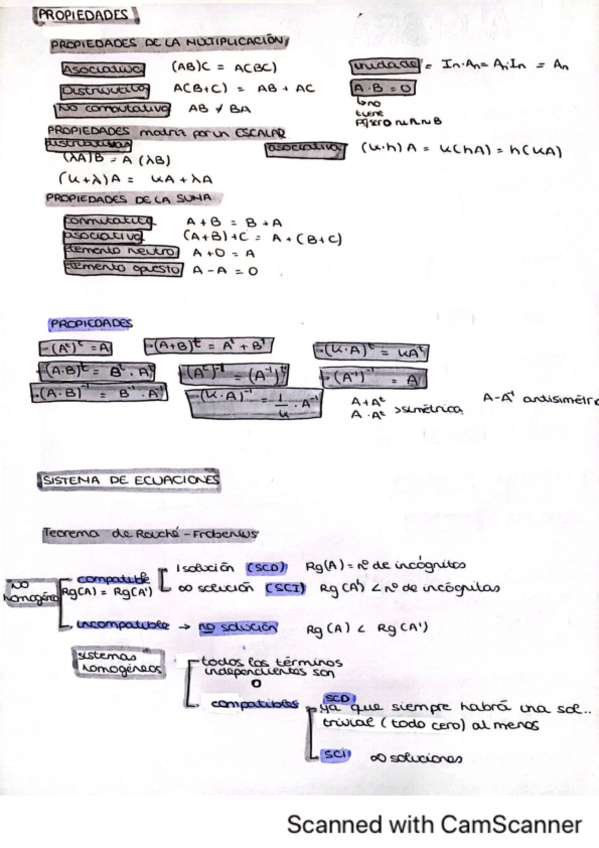 PROPIEDADES
PROPIEDADES DE LA MULTIPLICACIÓN
Asociativa (AB)C = A(BC)
unidad = In·An = An·In = An
Distributiva A(B+C) = AB + AC
A·B = 0
↳ no tiene
No conmutativa AB ≠ BA
PROPIEDADES matriz por un ESCALAR
distributivas
(λA)B = A(λB)
asociativa (k·h)A = k(hA) = h(kA)
(k+λ)A = kA + λA
PROPIEDADES DE LA SUMA
conmutativa A+B = B+A
asociativa (A+B)+C = A+(B+C)
elemento neutro A+0 = A
elemento opuesto A-A = 0
PROPIEDADES
-(Aᵗ)ᵗ = A -(A+B)ᵗ = Aᵗ + Bᵗ -(k·A)ᵗ = kAᵗ
-(A·B)ᵗ = Bᵗ·Aᵗ -(Aᵗ)⁻¹ = (A⁻¹)ᵗ -(A⁻¹)⁻¹ = A
-(A·B)⁻¹ = B⁻¹·A⁻¹ -(k·A)⁻¹ = 1/k · A⁻¹
A+Aᵗ
A·Aᵗ >simétrica
A-Aᵗ antisimétric
SISTEMA DE ECUACIONES
Teorema de Rouché-Frobenius
no homogéneo
compatible
Rg(A) = Rg(A')
1 solución (SCD) Rg(A) = nº de incógnitas
∞ solución (SCI) Rg(A) < nº de incógnitas
incompatible → no solución Rg(A) < Rg(A')
sistemas homogéneos
todos los términos
independientes son
0
compatibles
SCD
ya que siempre habrá una sol..
trivial (todo cero) al menos
SCI ∞ soluciones
Scanned with CamScanner